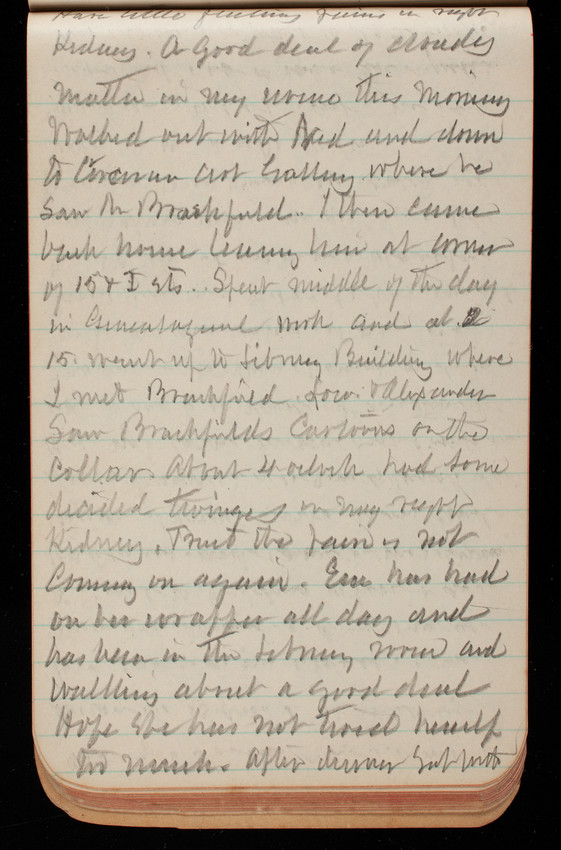 Have little flicking pains in right
Kidney. A Good deal of cloudy
matter in my urine this Morning
Walked out with Ned and down
to Corcoran Art Gallery where he
Saw Mr Brashfield. I then came
back home leaving him at corner
of 15 & I sts. Spent middle of the day
in work and at 2
15 went up to Library Building where
I met Brashfield & Alexander
Saw Brashfields Cartoons on the
Collar. About 4 oclock had some
decided twinges in my right
Kidney. Trust the pain is not
Coming on again. Em has had
on her wrapper all day and
has been in the Library room and
walking about a good deal
Hope she has not tired herself
too much. After dinner Sat with